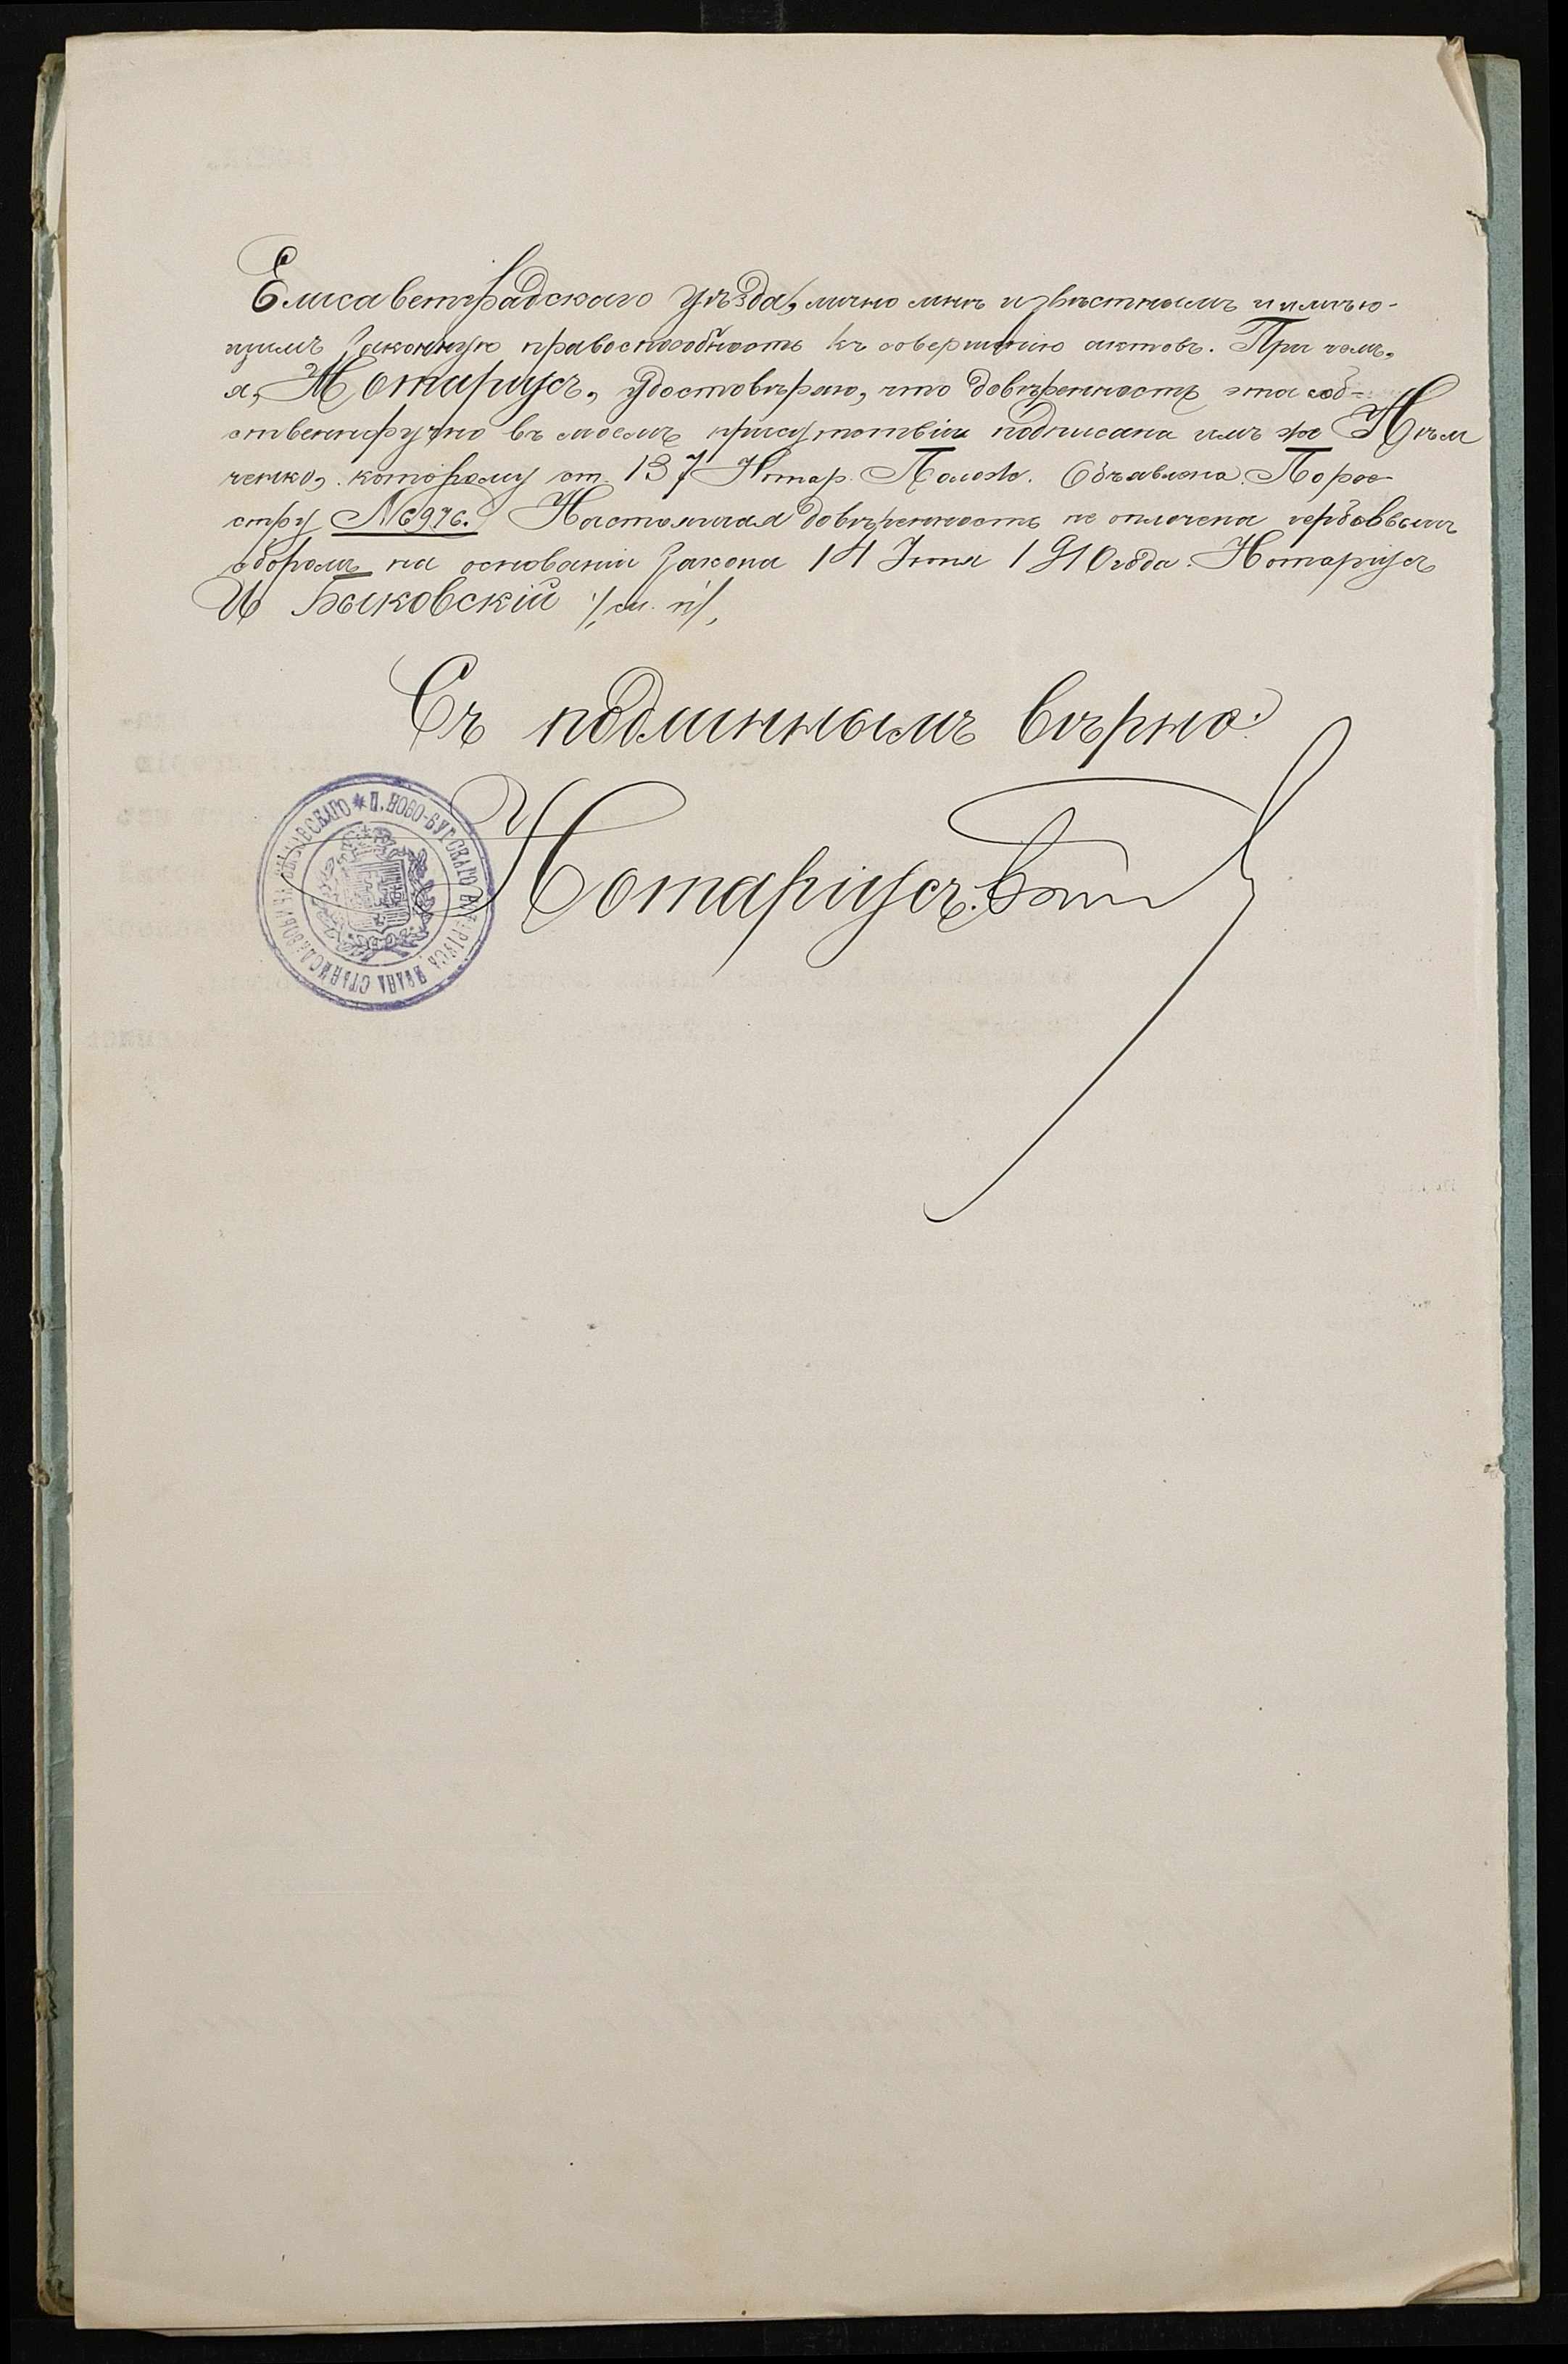 Елисаветградскаго уѣзда, лично мнѣ извѣстнымъ и имѣю-
щимъ законную правоспособность къ совершенію актовъ. При чемъ,
я, Нотаріусъ, удостовѣряю, что довѣренность эта соб-
ственноручно въ моемъ присутствіи подписана имъ же Нѣм
ченко, которому ст. 137 Нотар. Полож. Объявлена. По рее
стру №6976. Настоящая довѣренность не оплачена гербовымъ
сборомъ на основаніи закона 14 Іюня 1910 года. Нотаріусъ
И Быковскій /,м. п/,
Съ подлиннымъ вѣрно:
Нотаріусъ.
П. НОВО-БУГСКАГО НОТАРІУСЪ ИВАНЪ СТАНИСЛАВОВИЧЪ